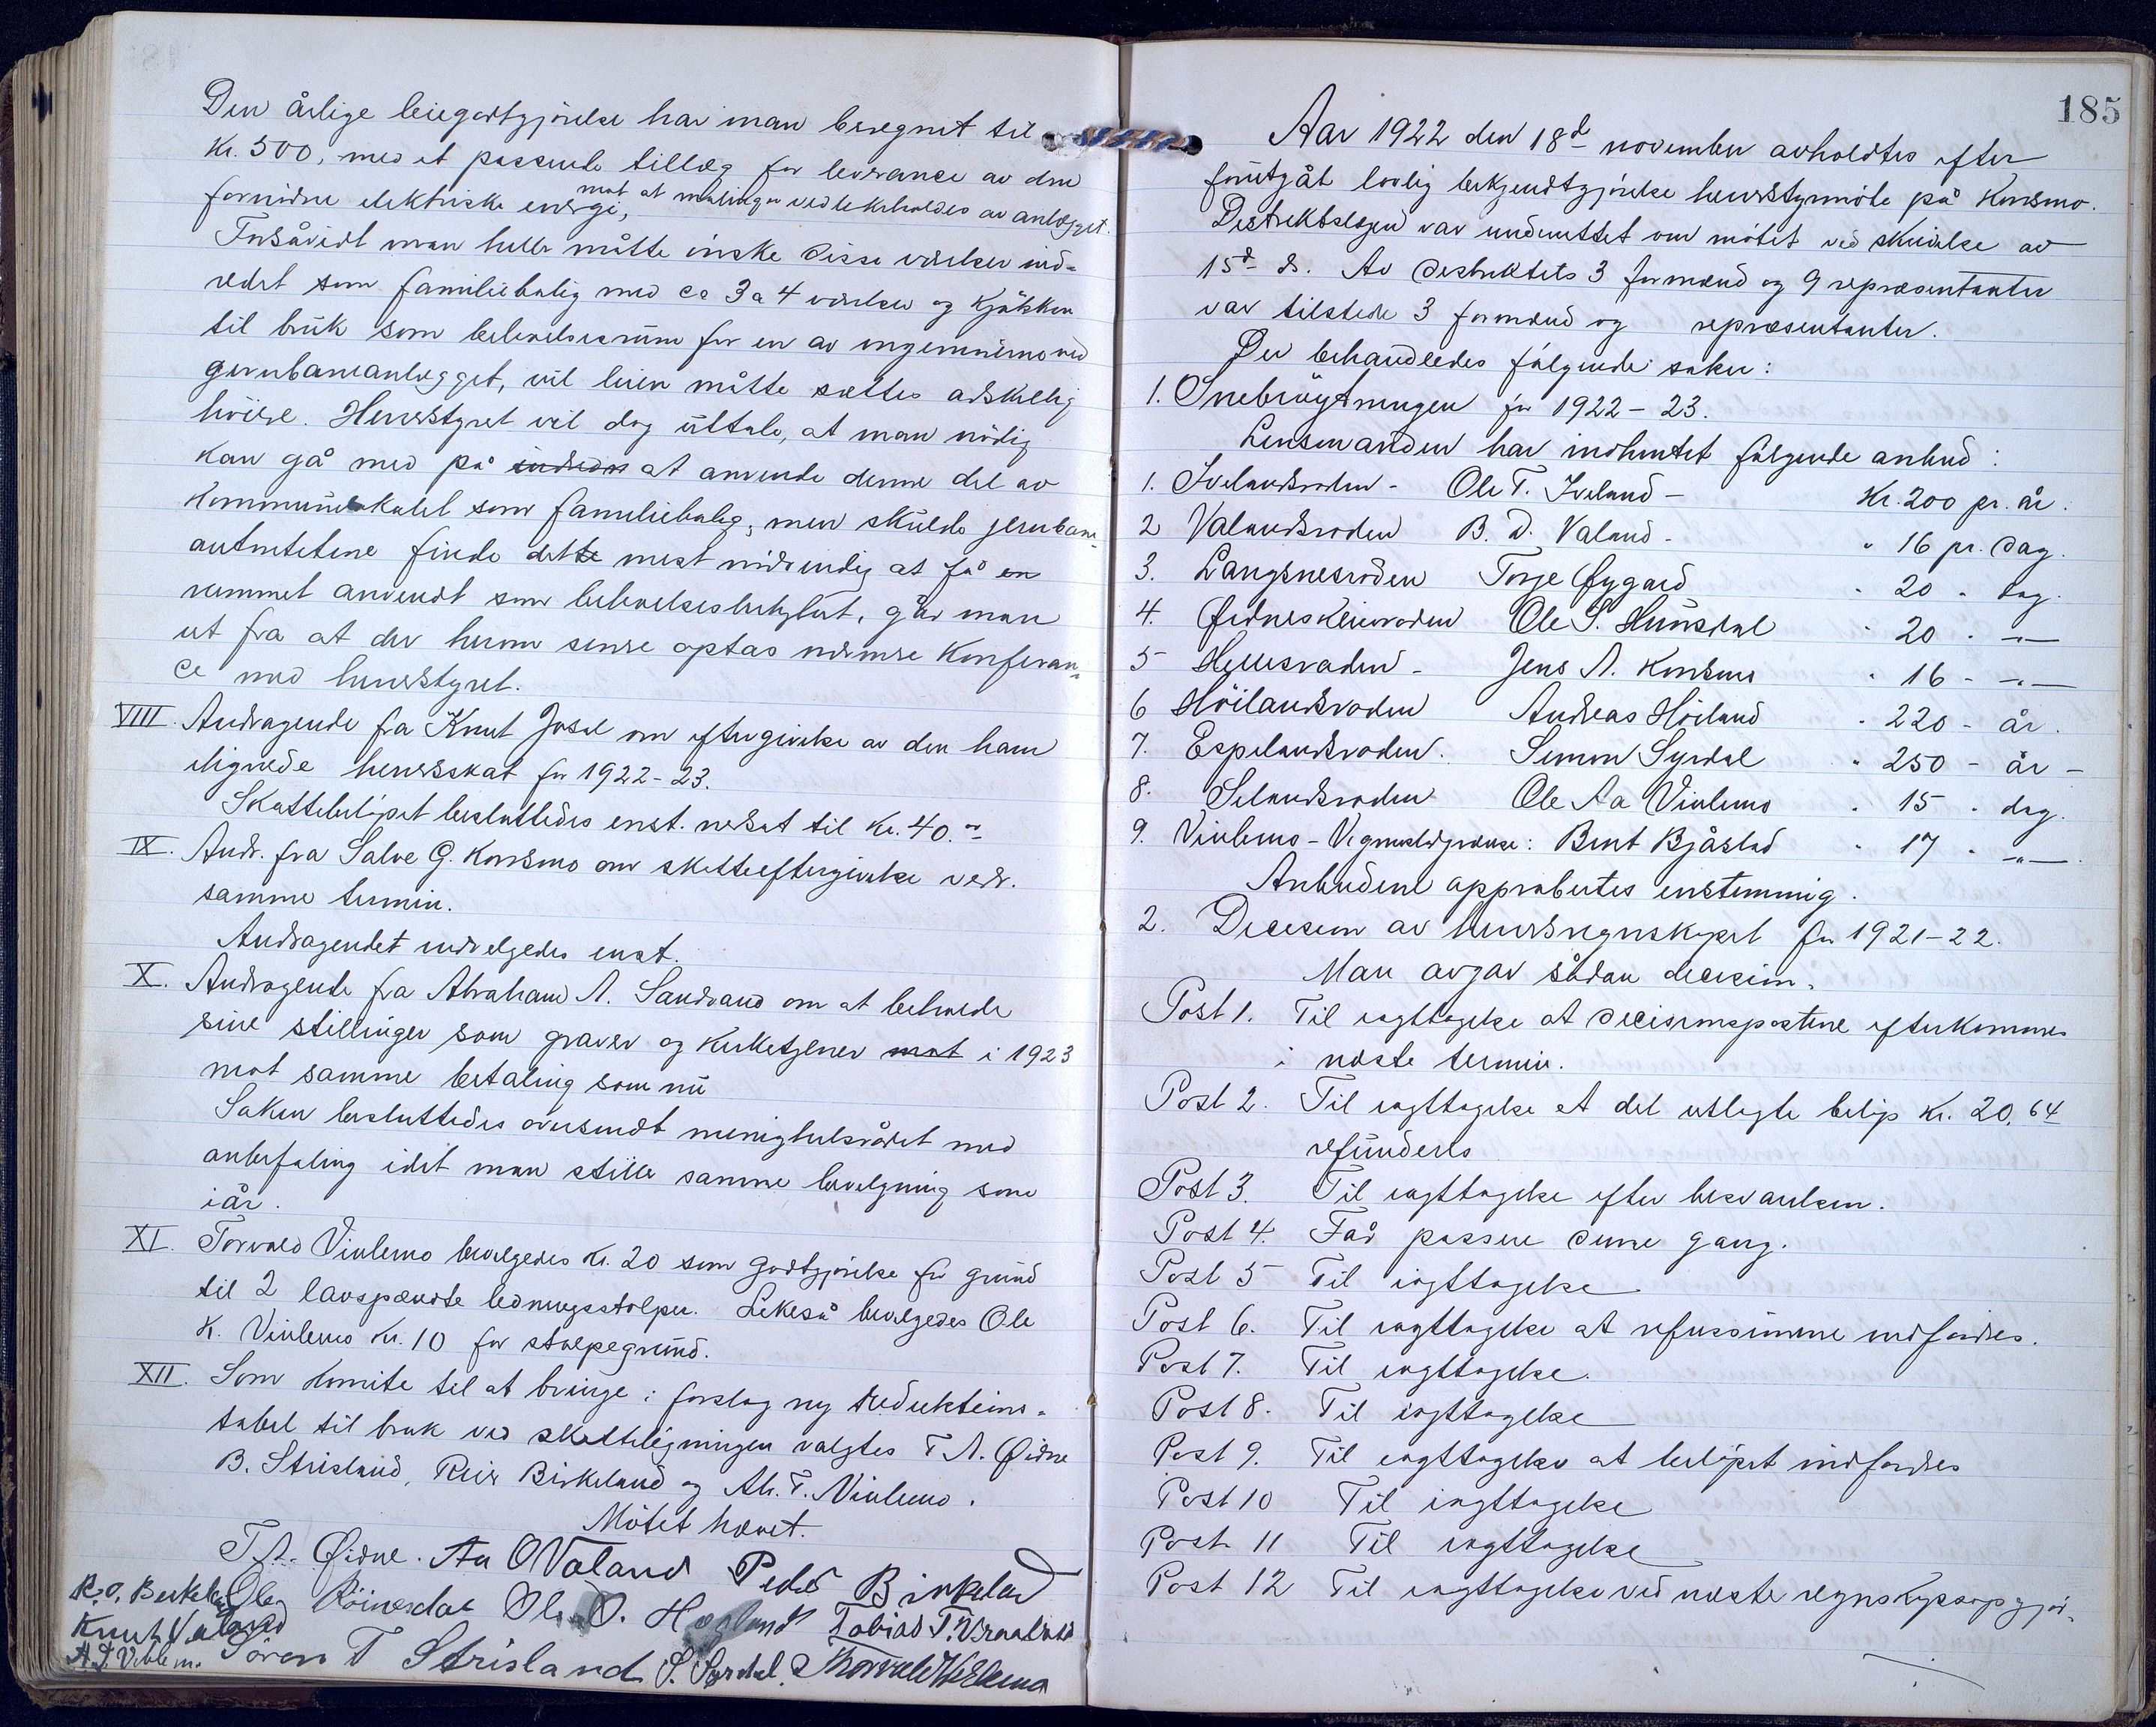 Den årlige leiegodtgjörelse har man beregnet til
Kr. 500, med et passende tillæg for leverance av den
fornödne elektriske energi, mot at malingen vedlikeholdes av anlægget.
Forsåvidt man heller måtte önske disse værelser ind-
redet som familiebolig med ca 3 a 4 værelser og kjökken
til bruk som beboelsesrum for en av ingeniörerne ved
jernbaneanlægget, vil leien måtte sættes adskillig
höiere. Herredstyret vil dog uttale, at man nödig
kan gå med på at anvende denne del av
kommunelokalet som familiebolig, men skulde jernbane-
autoritetene finde dette mest nödvendig at få en
rummet anvendt som beboelsesleilighet, går man
ut fra at der herom senere optas nærmere konferan-
ce med herredstyret.
VIII. Andragende fra Knut Josdal om eftergivelse av den ham
ilignede herredsskat for 1922-23.
Skattebelöpet besluttedes enst. nedsat til Kr. 40.00
IX. Andr. fra Salve G. Konsmo om skatteeftergivelse vedr.
samme termin.
Andragendet indvilgedes enst.
X. Andragende fra Abraham A. Sandvand om at beholde
sine stillinger som graver og kirketjener mot i 1923
mot samme betaling som nu
Saken besluttedes oversendt menighetsrådet med
anbefaling idet man stiller samme bevilgning som
iår.
XI. Torvald Viblemo bevilgedes Kr. 20 som godtgjörelse for grund
til 2 lavspændte ledningsstolper. Likeså bevilgedes Ole
K. Viblemo Kr. 10 for stolpegrund.
XII. Som komite til at bringe i forslag ny reduktions-
tabel til bruk ved skatteligningen valgtes T. A. Øidne
B. Strisland, Peder Birkeland og Ab. T. Viblemo.
Mötet hævet.
T. A. Øidne. Aa O Valand Peder Birkeland
R. O. Birkeland Ole Röinesdal Ole O. Hægland Tobias T. Vraaland
Knut Valand
A. T. Viblemo. Sören T Strisland S. Syrdal. Thorvald Viblemo
185
Aar 1922 den 18d november avholdtes efter
forutgåt lovlig bekjendtgjörelse herredstyrmöte på Konsmo.
Distriktslægen var underrettet om mötet ved skrivelse av
15d ds. Av distriktets 3 formænd og 9 repræsentanter
var tilstede 3 formænd og repræsentanter.
Der behandledes fölgende saker:
1. Snebröytningen for 1922-23.
Lensmanden har indhentet fölgende anbud:
1. Ivelandsroden - Ole T. Iveland - Kr. 200 pr. år.
2 Valandsroden B. D. Valand - " 16 pr. dag.
3. Langsnesroden Torje Øygard " 20 " dag.
4. Øidneskleivroden Ole S. Hunsdal " 20 " -"-
5 Hellesroden - Jens A. Konsmo " 16 - -"-
6 Höilandsroden Andreas Höiland " 220 - år.
7. Espelandsroden. Simon Syrdal " 250 - år -
8. Selandsroden Ole Aa Viblemo " 15 " dag.
9. Viblemo - Vegusdalgrænse: Bent Bjåstad " 17 " -"-
Anbudene approbertes enstemmig.
2. Decision av herredsregnskapet for 1921-22.
Man avgav sådan decision.
Post 1. Til iagttagelse at decisionspostene efterkommes
i næste termin.
Post 2. Til iagttagelse at det utlagte belöp Kr. 20.64
refunderes
Post 3. Til iagttagelse efter besvarelsen.
Post 4. Får passere denne gang.
Post 5 Til iagttagelse
Post 6. Til iagttagelse at refussionene indfordres.
Post 7. Til iagttagelse.
Post 8. Til iagttagelse
Post 9. Til iagttagelse at belöpet indfordres
Post 10 Til iagttagelse
Post 11 Til iagttagelse
Post 12 Til iagttagelse ved næste regnskapsopgjör.